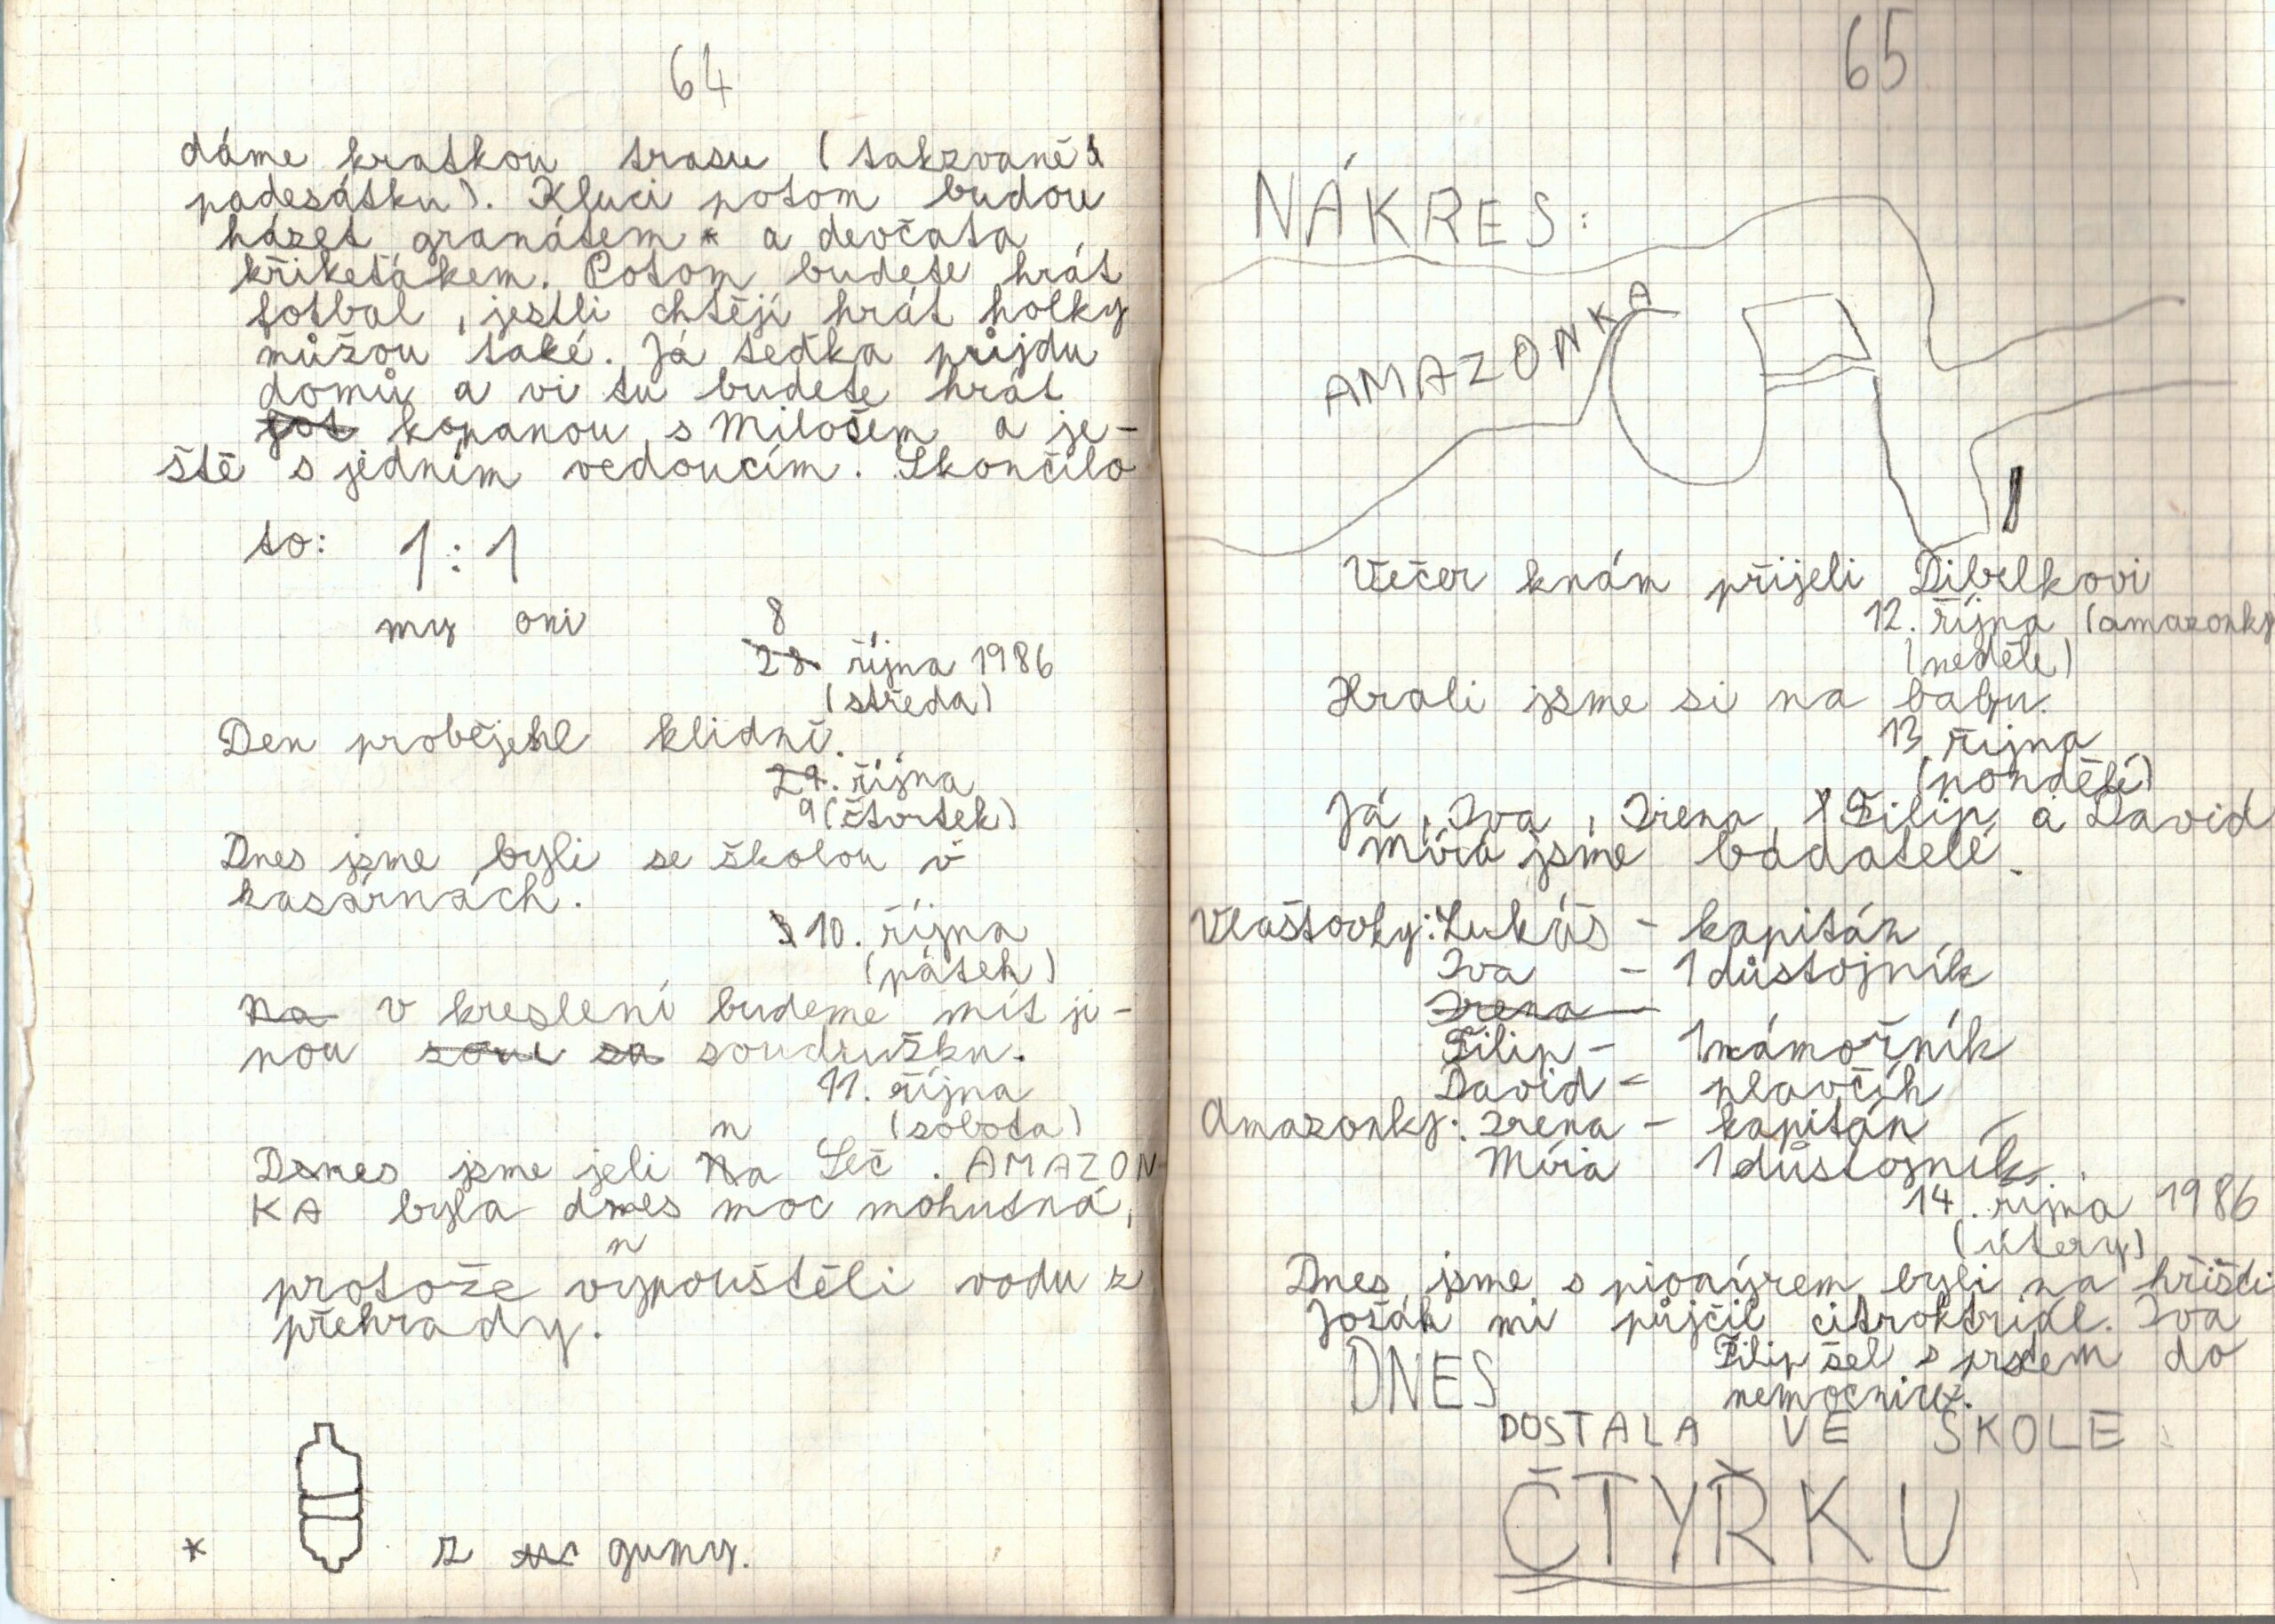 64
dáme kratkou trasu (takzvaně
padesátku). Kluci potom budou
házet granátem * a devčata
kriketákem. Potom budete hrát
fotbal, jestli chtějí hrát holky
můžou také. Já teďka půjdu
domů a vi tu budete hrát
fot kopanou s Milošem a je-
ště s jedním vedoucím. Skončilo
to: 1 : 1
my oni
8
28 října 1986
(středa)
Den probějehl klidně.
29. října
9 (čtvrtek)
Dnes jsme byli se školou v
kasárnách.
10. října
(pátek)
Na v kreslení budeme mít ji-
nou sou sa soudružku.
11. října
(sobota)
n
Dnes jsme jeli Na Seč. AMAZON
KA byla dnes moc mohutná,
n
protože vypouštěli vodu z
přehrady.
* z gumy.
65
NÁKRES:
AMAZONKA
Večer knám přijeli Dibelkovi
12. října (amazonky
(neděle)
Hrali jsme si na babu.
13 října
(pondělí)
Já, Iva, Irena, Filip a David
Míra jsme badatelé.
Vlaštovky: Lukáš - kapitán
Iva - 1 důstojník
Irena -
Filip - 1 námořník
David - plavčík
Amazonky: Irena - kapitán
Míra 1 důstojník
14. října 1986
(útery)
Dnes jsme s pionýrem byli na hřišti
Jošák mi půjčil Iva
Filip šel s prstem do
nemocnice.
DNES
DOSTALA VE ŠKOLE
ČTYŘKU